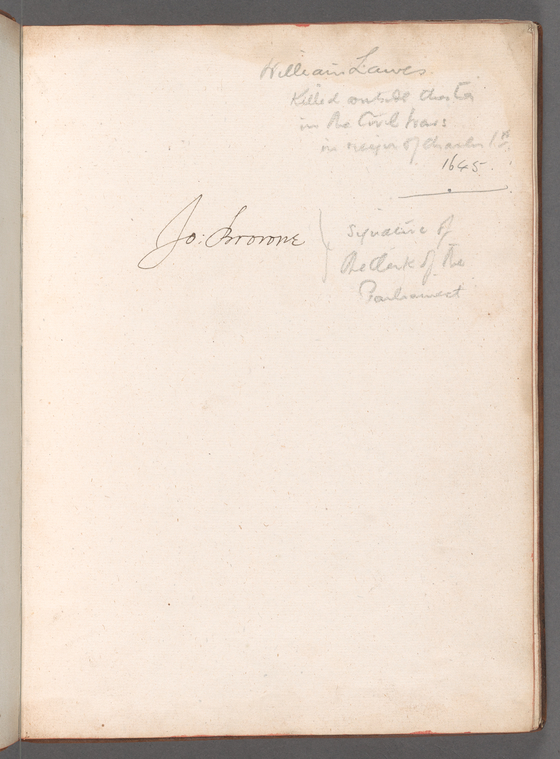 William Lawes
Killed outside Chester
in the Civil Wars
in reign of Charles 1st
1645.
Jo: Browne
Signature of
the Clerk of the
Parliament